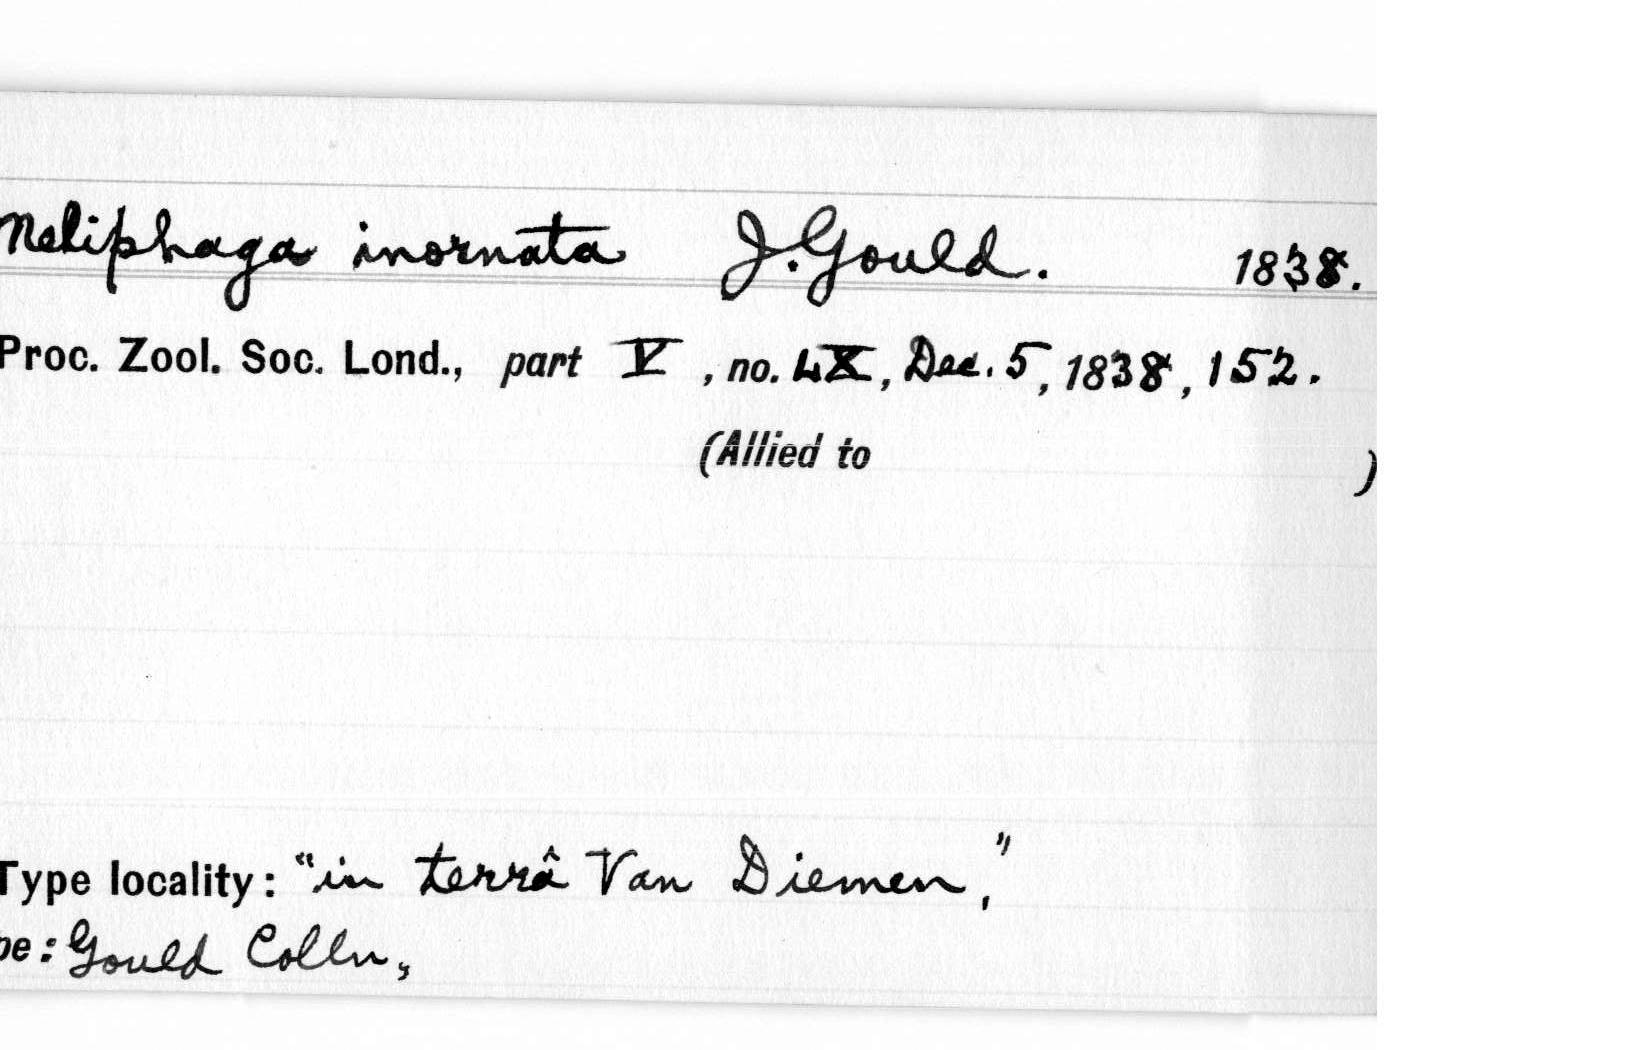 Meliphaga inornata J. Gould. 1838.
Proc. Zool. Soc. Lond., part V, no. LX, Dec. 5, 1838, 152.
(Allied to )
Type locality: "in terrâ Van Diemen,"
pe: Gould Colln,